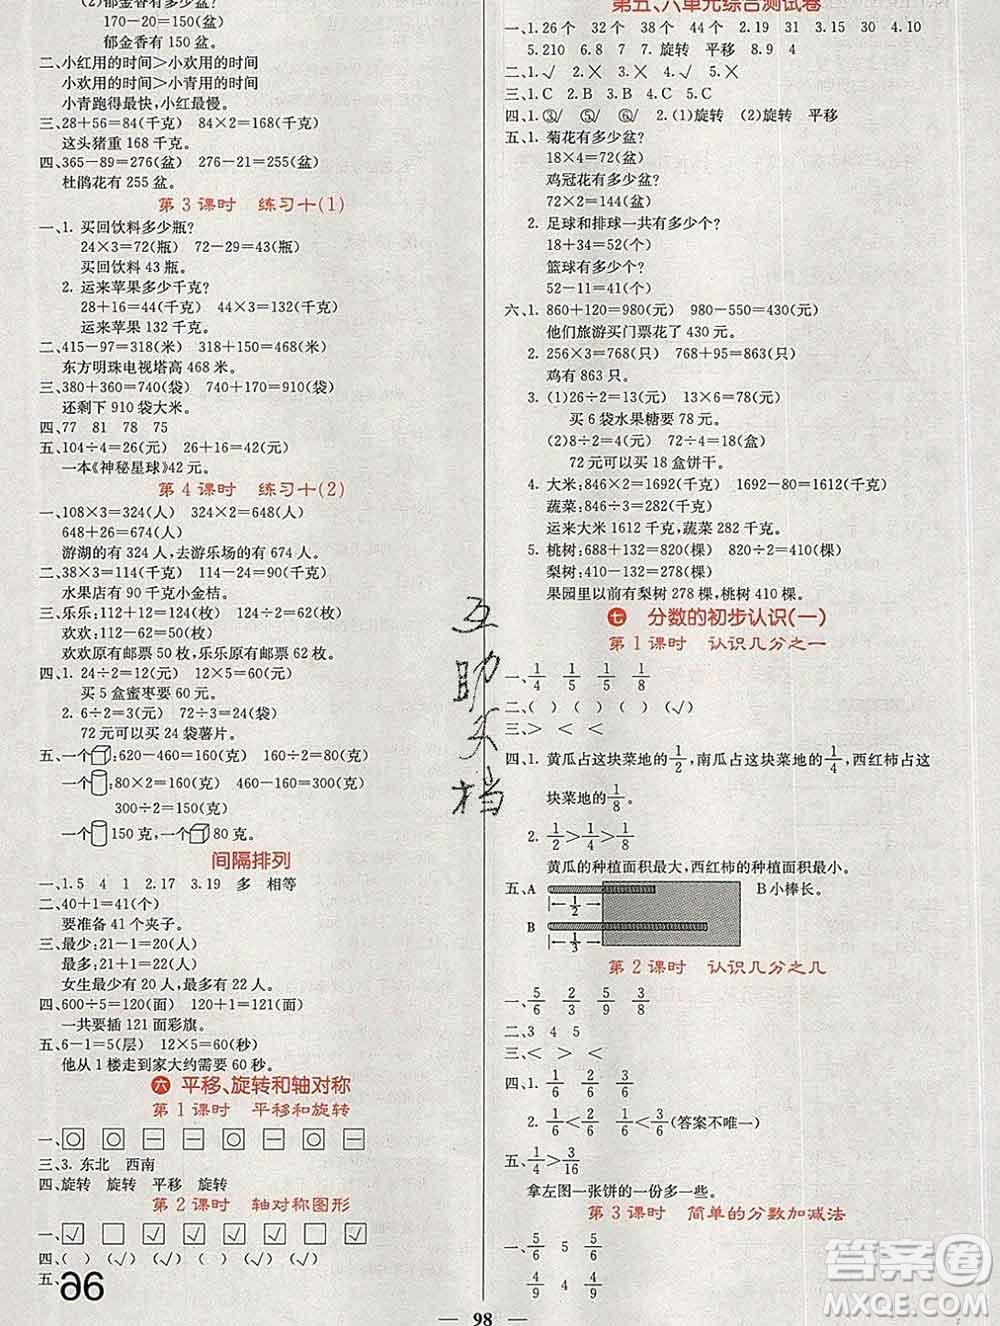 (2)郁金香有多少盆?
170－20=150(盆)
郁金香有 150 盆。
二、小红用的时间>小欢用的时间
小欢用的时间>小青用的时间
小青跑得最快,小红最慢。
三、28+56=84(千克) 84×2=168(千克)
这头猪重 168 千克。
四、365－89=276(盆) 276－21=255(盆)
杜鹃花有 255 盆。
第 3 课时 练习十(1)
一、1. 买回饮料多少瓶?
24×3=72(瓶) 72－29=43(瓶)
买回饮料 43 瓶。
2. 运来苹果多少千克?
28+16=44(千克) 44×3=132(千克)
运来苹果 132 千克。
二、415－97=318(米) 318+150=468(米)
东方明珠电视塔高 468 米。
三、380+360=740(袋) 740+170=910(袋)
还剩下 910 袋大米。
四、77 81 78 75
五、104÷4=26(元) 26+16=42(元)
一本《神秘星球》42 元。
第 4 课时 练习十(2)
一、108×3=324(人) 324×2=648(人)
648+26=674(人)
游湖的有 324 人,去游乐场的有 674 人。
二、38×3=114(千克) 114－24=90(千克)
水果店有 90 千克小金桔。
三、乐乐:112+12=124(枚)
欢欢:112－62=50(枚)
欢欢原有邮票 50 枚,乐乐原有邮票 124 枚。
四、1. 24÷2=12(元) 12×5=60(元)
买 5 盒蜜枣要 60 元。
2. 6÷2=3(元) 72÷3=24(袋)
72 元可以买 24 袋薯片。
五、一个:620－460=160(克) 160÷2=80(克)
一个:80×2=160(克) 460－160=300(克)
300÷2=150(克)
一个150 克,一个80 克。
间隔排列
一、1. 5 4 1 2. 17 3. 19 多 相等
二、40+1=41(个)
要准备 41 个夹子。
三、最少:21－1=20(人)
最多:21+1=22(人)
女生最少有 20 人,最多有 22 人。
四、600÷5=120(面) 120+1=121(面)
一共要插 121 面彩旗。
五、6－1=5(层) 12×5=60(秒)
他从 1 楼走到家大约需要 60 秒。
六 平移、旋转和轴对称
第 1 课时 平移和旋转
一、○ ○ － － ○ － － ○
三、3. 东北 西南
四、旋转 旋转 平移 旋转
第 2 课时 轴对称图形
一、√ √ √ √ √
四、( ) (√) ( ) (√) (√)
五、
96
第五、六单元综合测试卷
一、1. 26个 32个 38个 44个 2. 19 31 3. 15 30 4. 10
5. 210 6. 8 7 7. 旋转 平移 8. 9 4
二、1. √ 2. × 3. × 4. √ 5. ×
三、1. C 2. B 3. C 4. C 5. C
四、1. ③⑤ ⑥ 2. (1)旋转 (2)旋转 平移
五、1. 菊花有多少盆?
18×4=72(盆)
鸡冠花有多少盆?
72×2=144(盆)
2. 足球和排球一共有多少个?
18+34=52(个)
篮球有多少个?
52－11=41(个)
六、1. 860+120=980(元) 980－550=430(元)
他们旅游买门票花了 430 元。
2. 256×3=768(只) 768+95=863(只)
鸡有 863 只。
3. (1)26÷2=13(元) 13×6=78(元)
买 6 袋水果糖要 78 元。
(2)8÷2=4(元) 72÷4=18(盒)
72 元可以买 18 盒饼干。
4. 大米:846×2=1692(千克) 1692－80=1612(千克)
蔬菜:846÷3=282(千克)
运来大米 1612 千克,蔬菜 282 千克。
5. 桃树:688+132=820(棵) 820÷2=410(棵)
梨树:410－132=278(棵)
果园里以前有梨树 278 棵,桃树 410 棵。
七 分数的初步认识(一)
第 1 课时 认识几分之一
一、1/4 1/5 1/5 1/8
二、( ) ( ) ( ) (√)
三、> < <
四、1. 黄瓜占这块菜地的1/2,南瓜占这块菜地的1/4,西红柿占这
块菜地的1/8。
2. 1/2>1/4>1/8
黄瓜的种植面积最大,西红柿的种植面积最小。
五、A B小棒长。
1/2
B
1/3
第 2 课时 认识几分之几
一、5/6 2/3 5/8 3/9
二、3 4 5
三、> < < <
四、1. 1/6 2/6 3/6
2. 1/6<2/6<3/6(答案不唯一)
五、1/4>3/16
拿左图一张饼的一份多一些。
第 3 课时 简单的分数加减法
一、4/5 5
4/9 4
98
互助文档
答案圈
MXQE.COM